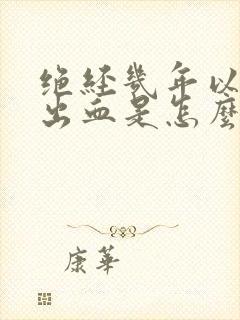 绝经几年以
出血是怎麼
康華